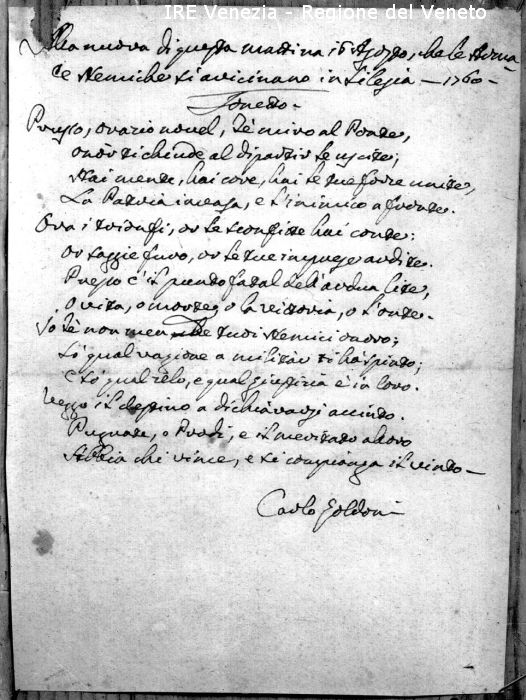 IRE Venezia - Regione del Veneto
Alla nuova di questa mattina 16 Agosto, che le Arma
te Nemiche si avicinano in Silesia — 1760 —
Sonetto —
Prusso, Orazio novel, te miro al Ponte,
Onor ti chiude al dipartir le uscite;
Hai mente, hai core, hai le tue forze unite,
La Patria in casa, e l'inimico a fronte.
Ora i trionfi, or le sconfitte hai conte:
Or saggie furo, or le tue imprese ardite.
Presso è il punto fatal dell'ardua lite,
O vita, o morte, o la vittoria, o l'onte.
Io te non men che tuoi Nemici onoro;
So qual ragione a militar ti ha spinto;
E so qual zelo, e qual giustizia è in loro.
Veggo il destino a dichiararsi accinto.
Pugnate, o Prodi, e il meritato alloro
Abbia chi vince, e si compianga il vinto —
Carlo Goldoni